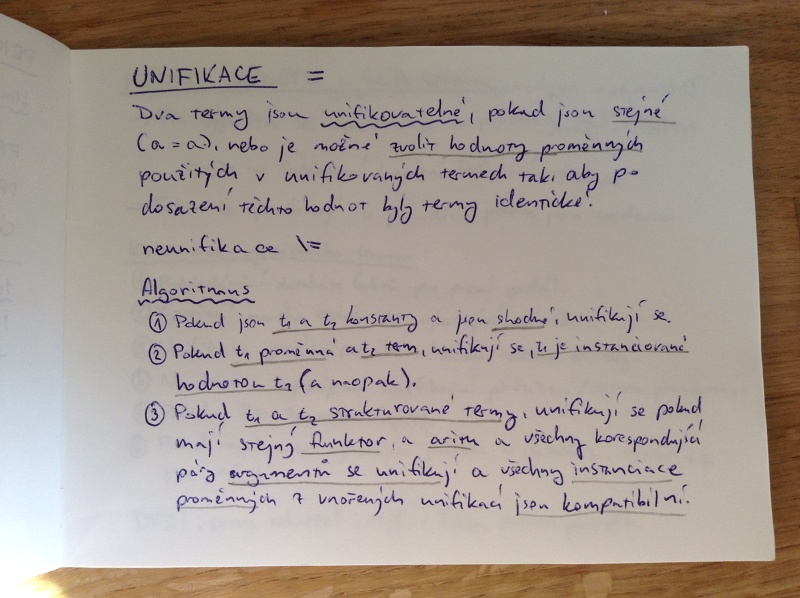 UNIFIKACE =
Dva termy jsou unifikovatelné, pokud jsou stejné
(a = a), nebo je možné zvolit hodnoty proměnných
použitých v unifikovaných termech tak, aby po
dosazení těchto hodnot byly termy identické.
neunifikace \=
Algoritmus
① Pokud jsou t₁ a t₂ konstanty a jsou shodné, unifikují se.
② Pokud t₁ proměnná a t₂ term, unifikují se, t₁ je instanciované
hodnotou t₂ (a naopak).
③ Pokud t₁ a t₂ strukturované termy, unifikují se pokud
mají stejný funktor, a aritu a všechny korespondující
páry argumentů se unifikují a všechny instanciace
proměnných z vnořených unifikací jsou kompatibilní.